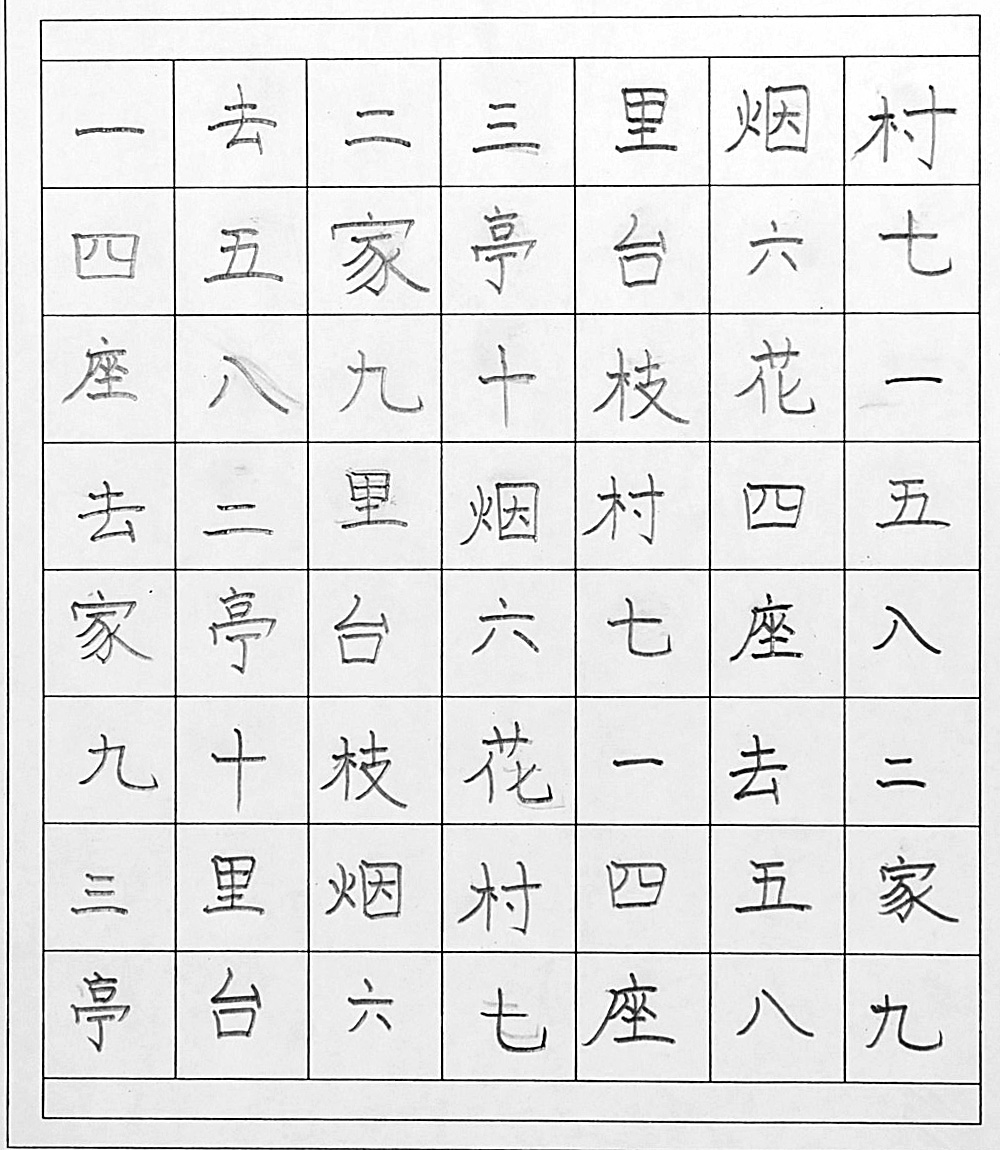 一去二三里烟村
四五家亭台六七
座八九十枝花一
去二里烟村四五
家亭台六七座八
九十枝花一去二
三里烟村四五家
亭台六七座八九